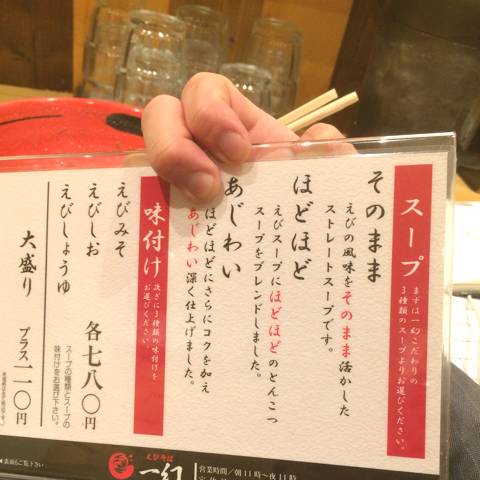 スープ
まずは一幻こだわりの
3種類のスープよりお選びください。
そのまま
えびの風味をそのまま活かした
ストレートスープです。
ほどほど
えびスープにほどほどのとんこつ
スープをブレンドしました。
あじわい
ほどほどにさらにコクを加え
あじわい深く仕上げました。
味付け
次ぎに3種類の味付けを
お選びください。
えびみそ
えびしお
えびしょうゆ
各七八〇円
スープの種類とスープの
味付けをお選び下さい。
大盛り
プラス一一〇円
◀表面もご覧下さい
えびそば
一幻
営業時間／朝11時〜夜11時